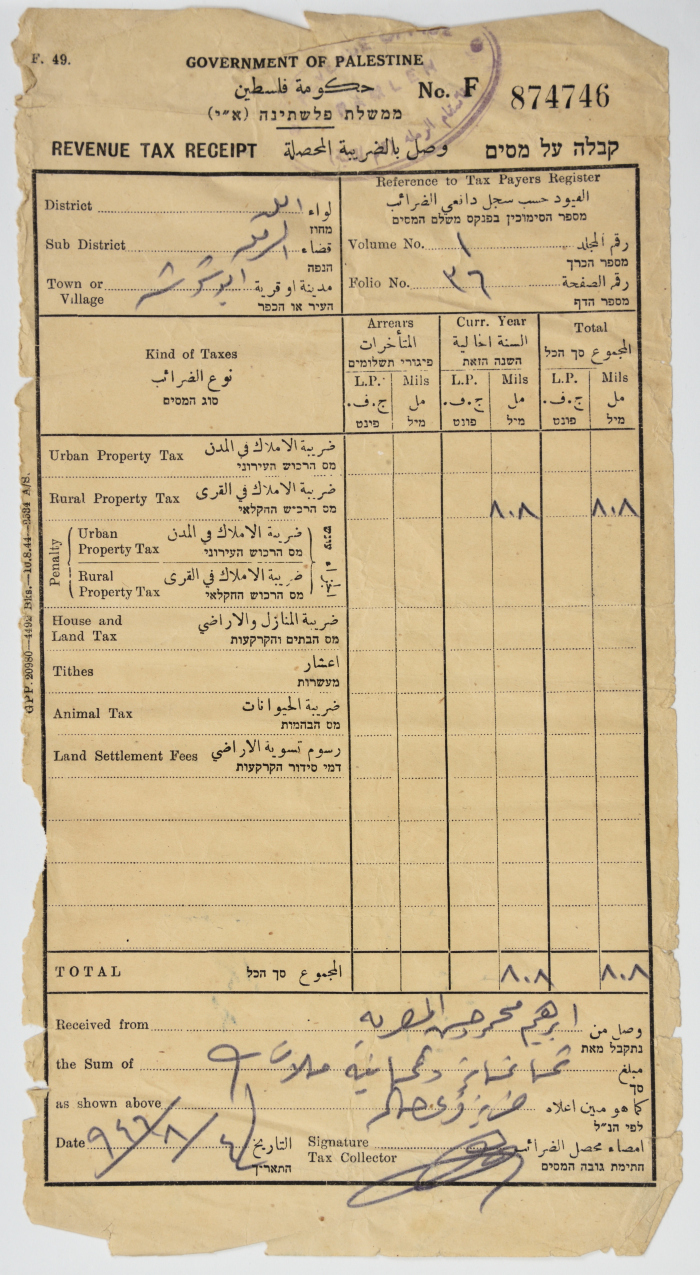 F. 49.
GOVERNMENT OF PALESTINE
حكومة فلسطين
ממשלת פלשתינה (א״י)
No. F 874746
REVENUE TAX RECEIPT وصل بالضريبة المحصلة קבלה על מסים
District لواء
מחוז
Sub District قضاء الرملة
הנפה
Town or Village مدينة او قرية ابو شوشه
העיר או הכפר
Reference to Tax Payers Register
القيود حسب سجل دافعي الضرائب
מספר הסימוכין בפנקס משלם המסים
Volume No. ١ رقم المجلد
מספר הכרך
Folio No. ٣٦ رقم الصفحة
מספר הדף
Kind of Taxes
نوع الضرائب
סוג המסים
Arrears
المتأخرات
פיגורי תשלומים
Curr. Year
السنة الحالية
השנה הזאת
Total
المجموع סך הכל
L.P. Mils L.P. Mils L.P. Mils
ج.ف. مل ج.ف. مل ج.ف. مل
פינט מיל פונט מיל פונט מיל
Urban Property Tax ضريبة الاملاك في المدن
מס הרכוש העירוני
Rural Property Tax ضريبة الاملاك في القرى ٨٠٨ ٨٠٨
מס הרכיש החקלאי
Penalty
Urban Property Tax ضريبة الاملاك في المدن
מס הרכוש העירוני
Rural Property Tax ضريبة الاملاك في القرى
מס הרכוש החקלאי
House and Land Tax ضريبة المنازل والاراضي
מס הבתים והקרקעות
Tithes اعشار
מעשרות
Animal Tax ضريبة الحيوانات
מס הבהמות
Land Settlement Fees رسوم تسوية الاراضي
דמי סידור הקרקעות
TOTAL المجموع סך הכל ٨٠٨ ٨٠٨
Received from وصل من ابرهيم محمد حسن
נתקבל מאת
the Sum of مبلغ ثمانمائة وثمانية ملات
סך
as shown above كما هو مبين اعلاه
לפי הנ״ל
Date ٩٤٦/٨/٤ التاريخ
התאריך
Signature Tax Collector امضاء محصل الضرائب
חתימת גובה המסים
GPP. 20980—4492 Bks.—10.8.44—9384 A/S.